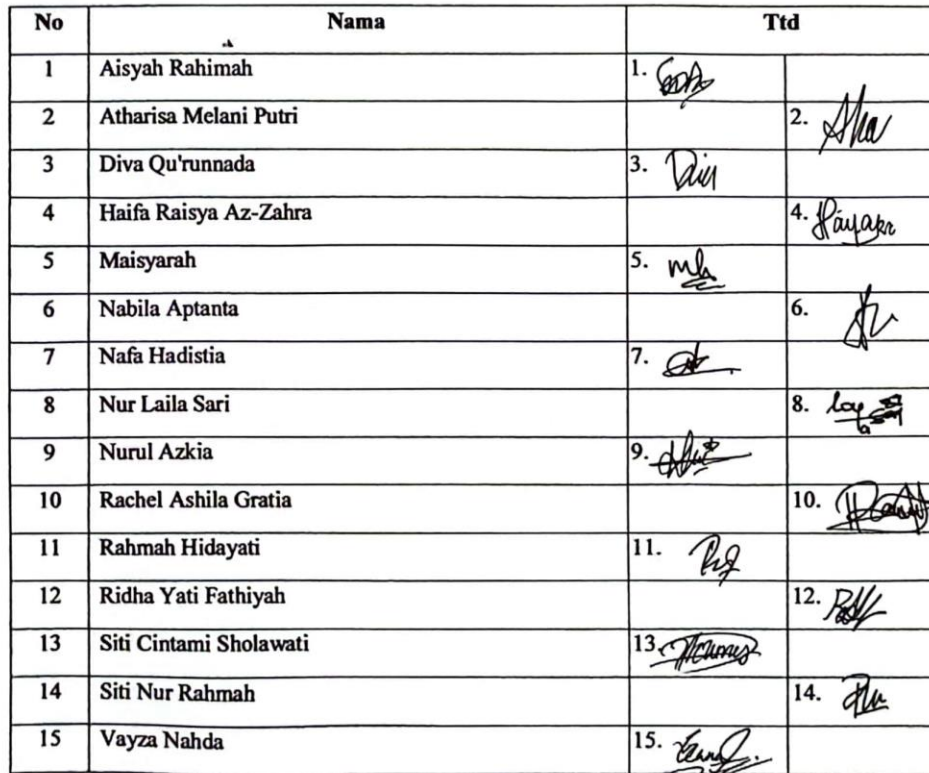 No Nama Ttd
1 Aisyah Rahimah 1.
2 Atharisa Melani Putri 2.
3 Diva Qu'runnada 3.
4 Haifa Raisya Az-Zahra 4.
5 Maisyarah 5.
6 Nabila Aptanta 6.
7 Nafa Hadistia 7.
8 Nur Laila Sari 8.
9 Nurul Azkia 9.
10 Rachel Ashila Gratia 10.
11 Rahmah Hidayati 11.
12 Ridha Yati Fathiyah 12.
13 Siti Cintami Sholawati 13.
14 Siti Nur Rahmah 14.
15 Vayza Nahda 15.